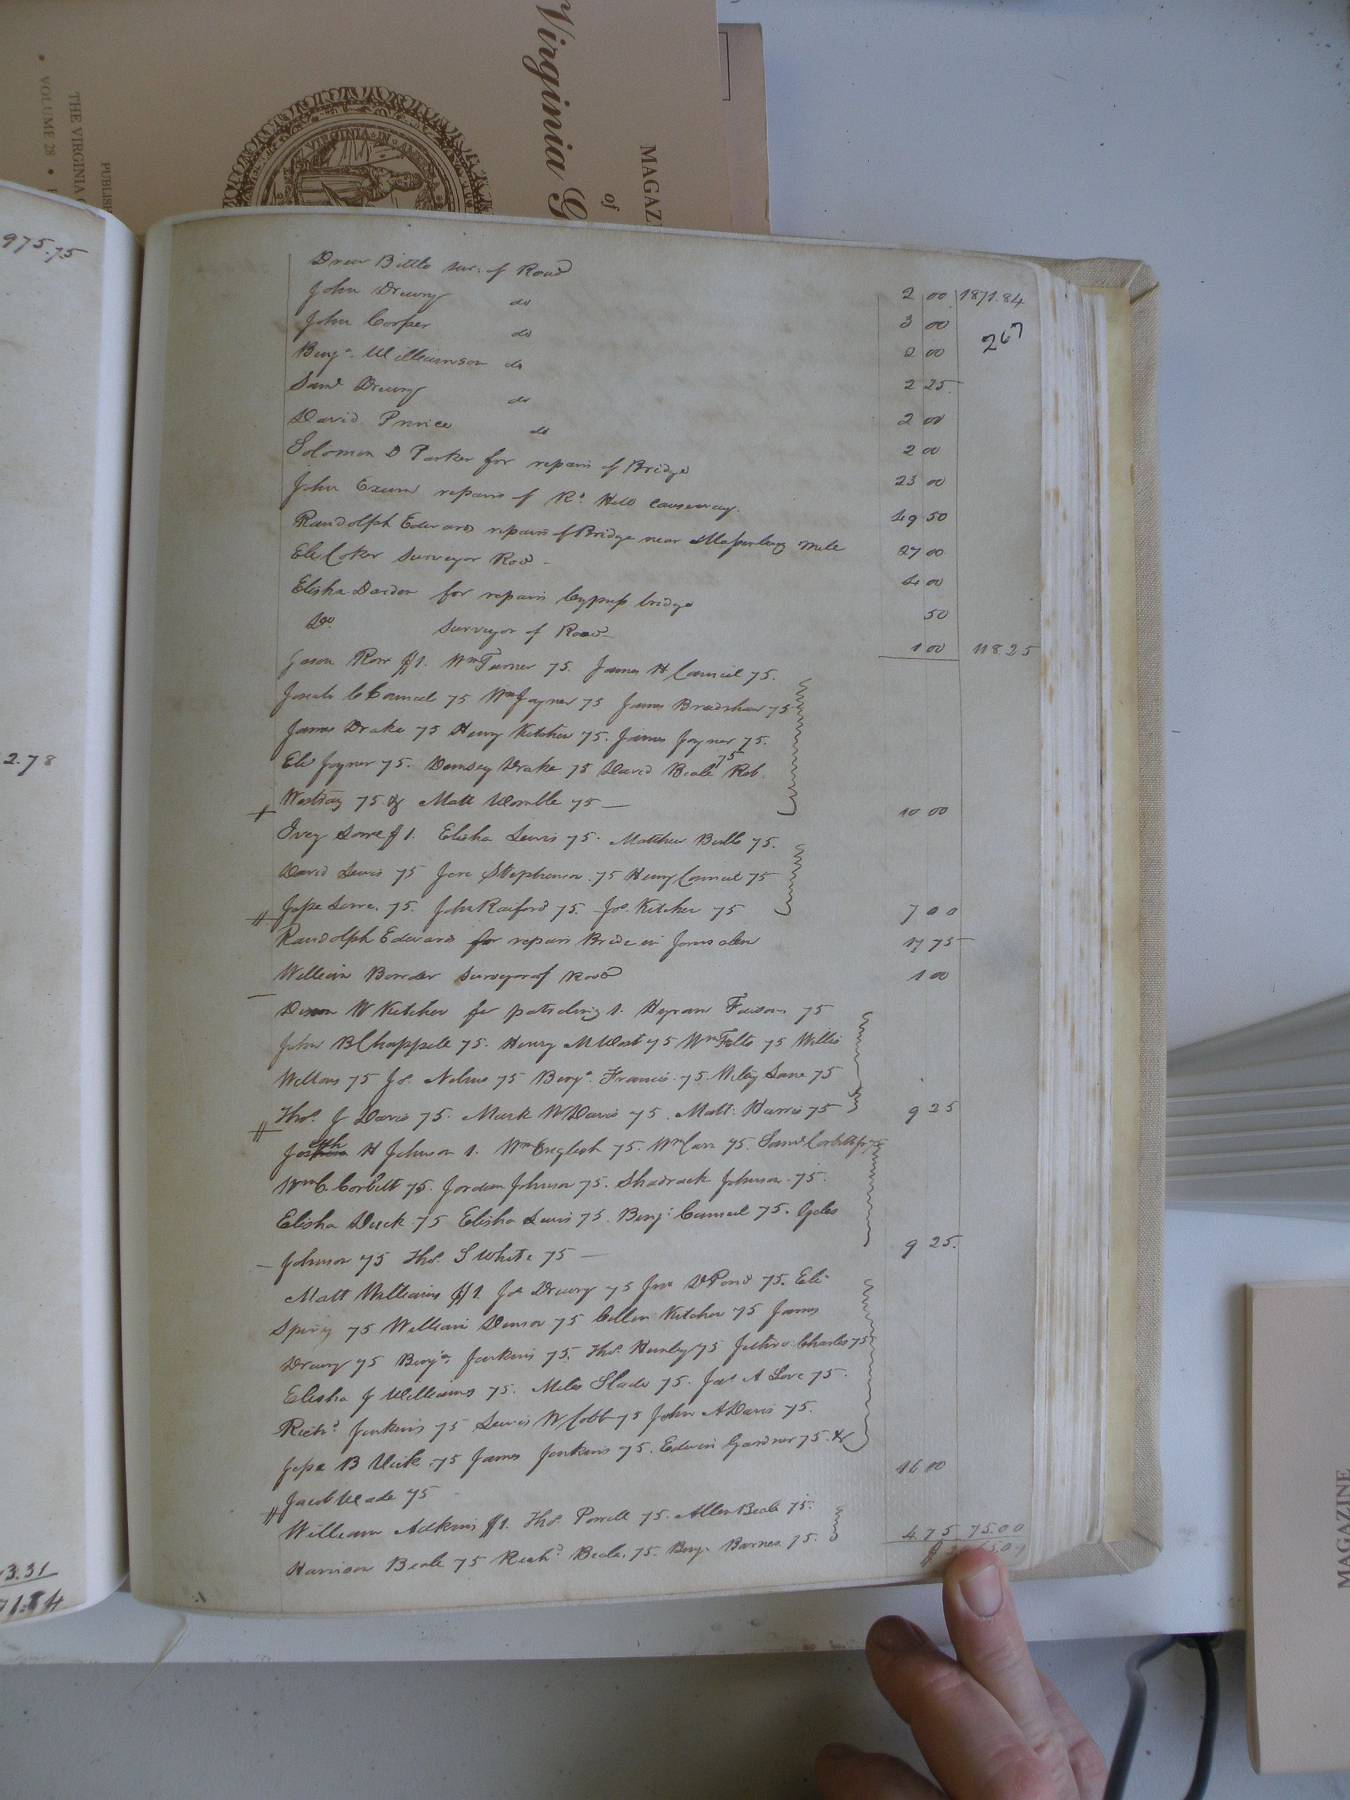 Virginia G
MAGAZ
of
THE VIRGINIA
VOLUME 28
PUBLIS
VIRGINIA
975.75
2.78
3.31
71.84
Drew Bittle sur. of Road 2 00 1871.84
John Drewry do 3 00
267
John Cooper do 2 00
Benja. Williamson do 2 25
Saml Drewry do 2 00
David Prince do 2 00
Solomon D Parker for repairs of Bridge 23 00
John Exum repairs of Rd causeway 49 50
Randolph Edwards repairs of Bridge near Massenburg mill 27 00
Eli Coker Surveyor Road - 4 00
Elisha Darden for repairs Cypress bridge 50
Do. Surveyor of Road 1 00 118.25
Jason Rorr $1. Wm Turner 75. James H Council 75.
Josiah C Council 75 Wm Joyner 75 James Bradshaw 75
James Drake 75 Henry Kitchen 75. James Joyner 75.
Eli Joyner 75. Demsey Drake 75 David Beale 75 Rob.
Westray 75 & Matt Womble 75 — 10 00
Ivey $1. Elisha Lewis 75. Matthew 75.
David Lewis 75 Jere Stephenson 75 Henry Council 75
Jesse 75. John Raiford 75. Jos. Kitchen 75 7 00
Randolph Edwards for repairs Bridge in Jerusalem 17 75
William Surveyor of Road 1 00
Dixon W Kitchen for patroling 1. Hyram Faison 75
John B Chappell 75. Henry M West 75 Wm Felts 75 Willis
Wellons 75 Jo. Nelms 75 Benja. Francis 75. Wiley Lane 75
Thos. J Davis 75. Mark W Davis 75. Matt. Harris 75 9 25
H Johnson 1. Wm English 75. Wm Carr 75. Saml Corbitt Jr 75
Wm C. Corbitt 75. Jordan Johnson 75. Shadrack Johnson 75.
Elisha Duck 75 Elisha Lewis 75. Benj. Council 75. Giles
Johnson 75 Thos. S White 75 — 9 25.
Matt Williams $1. Jos Drewry 75 Jno D Pond 75. Eli
Spivy 75 William Denson 75 Collin Kitchen 75 James
Drewry 75 Benja. Jenkins 75. Thos. Hunley 75 Jethro Charles 75
Elisha J Williams 75. Miles Slade 75. Jas A Love 75.
Richd Jenkins 75 Lewis W Cobb 75 John A Davis 75.
Jesse B 75 James Jenkins 75. Edwin Gardner 75. &
Jacob Meade 75 16 00
William Adkins $1. Thos. Powell 75. Allen Beale 75.
Harrison Beale 75 Richd Beale. 75. Benj. Barnes 75. 4.75 75.00
MAGAZINE